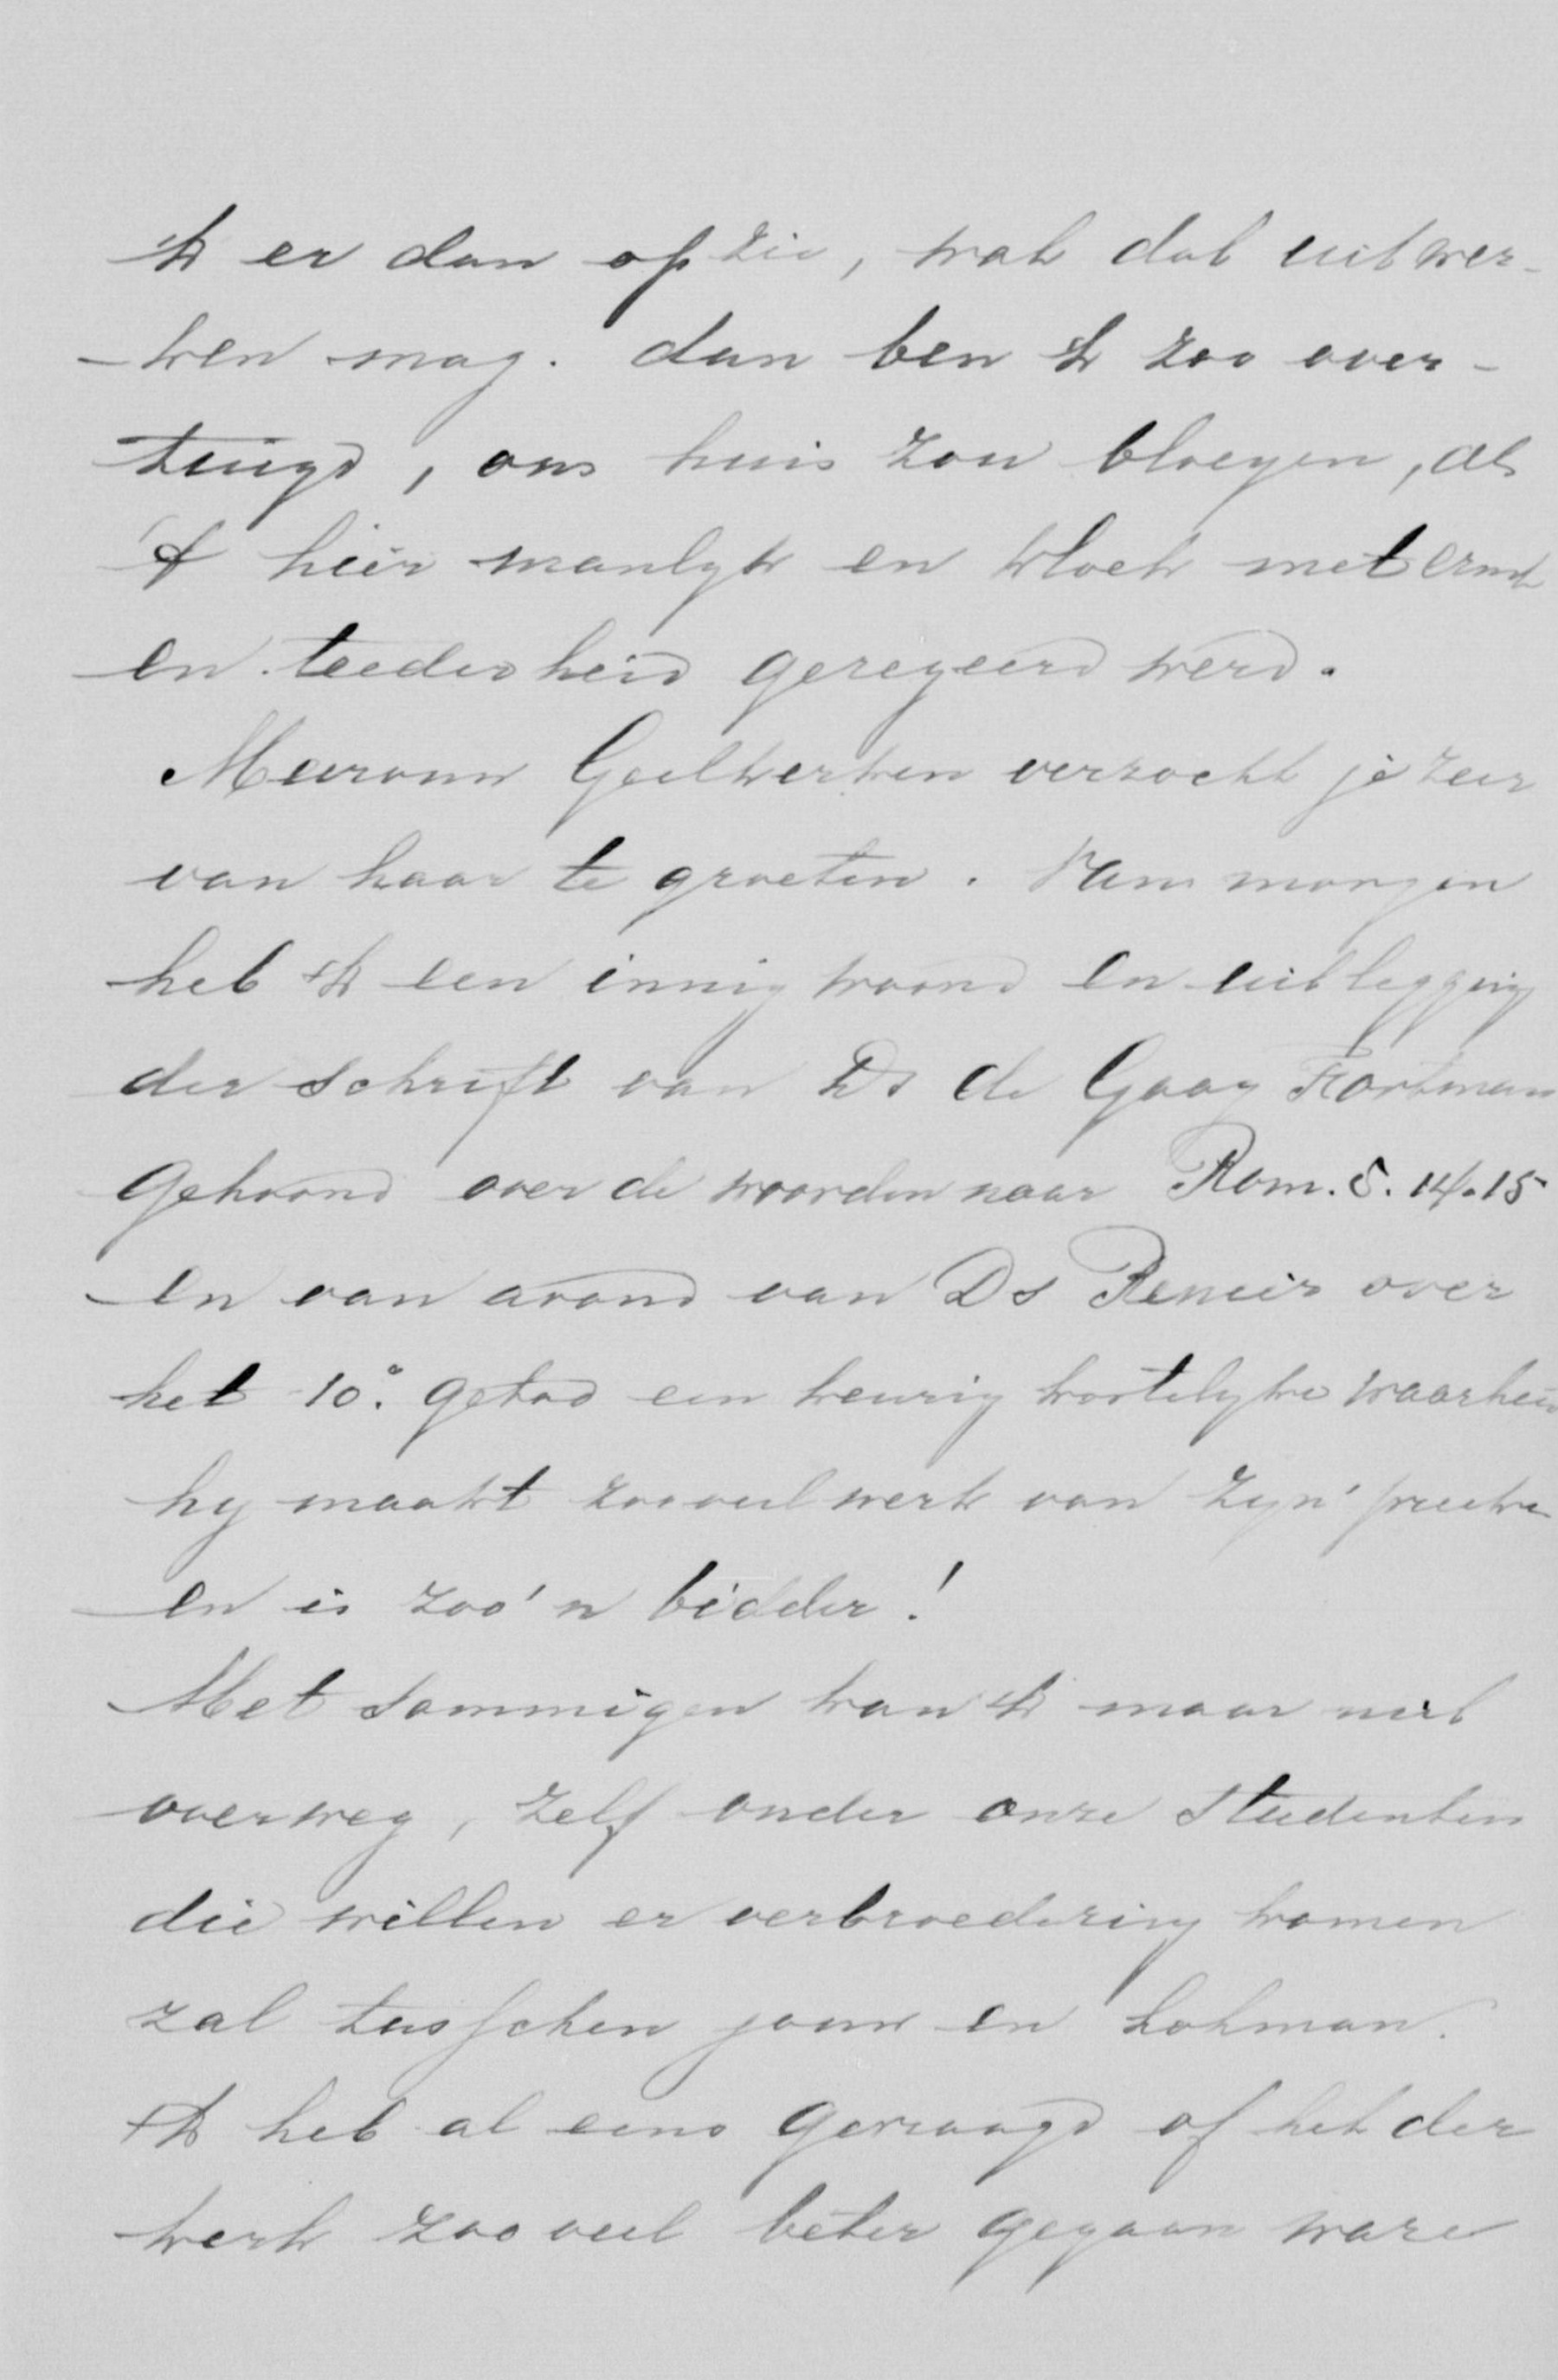 ik er dan op zie, wat dat uitwer-
-ken mag. dan ben ik zoo over-
tuigd, ons huis zou bloeyen, als
't hier manlyk en kloek met ernst
en teederheid geregeerd werd.
Mevrouw Geelkerken verzocht je zeer
van haar te groeten. Van morgen
heb ik een innig woord en uitlegging
der Schrift van Ds de Gaay Fortman
gehoord over de woorden naar Rom. 5. 14.15
en van avond van Ds Renier over
het 10e gebod een keurig kostelyke waarheid
hy maakt zooveel werk van zyn' preeken
en is zoo'n bidder!
Met sommigen kan ik maar niet
overweg, zelf onder onze Studenten
die willen er verbroedering komen
zal tusschen jouw en Lohman.
Ik heb al eens gevraagd of het der
kerk zooveel beter gegaan ware